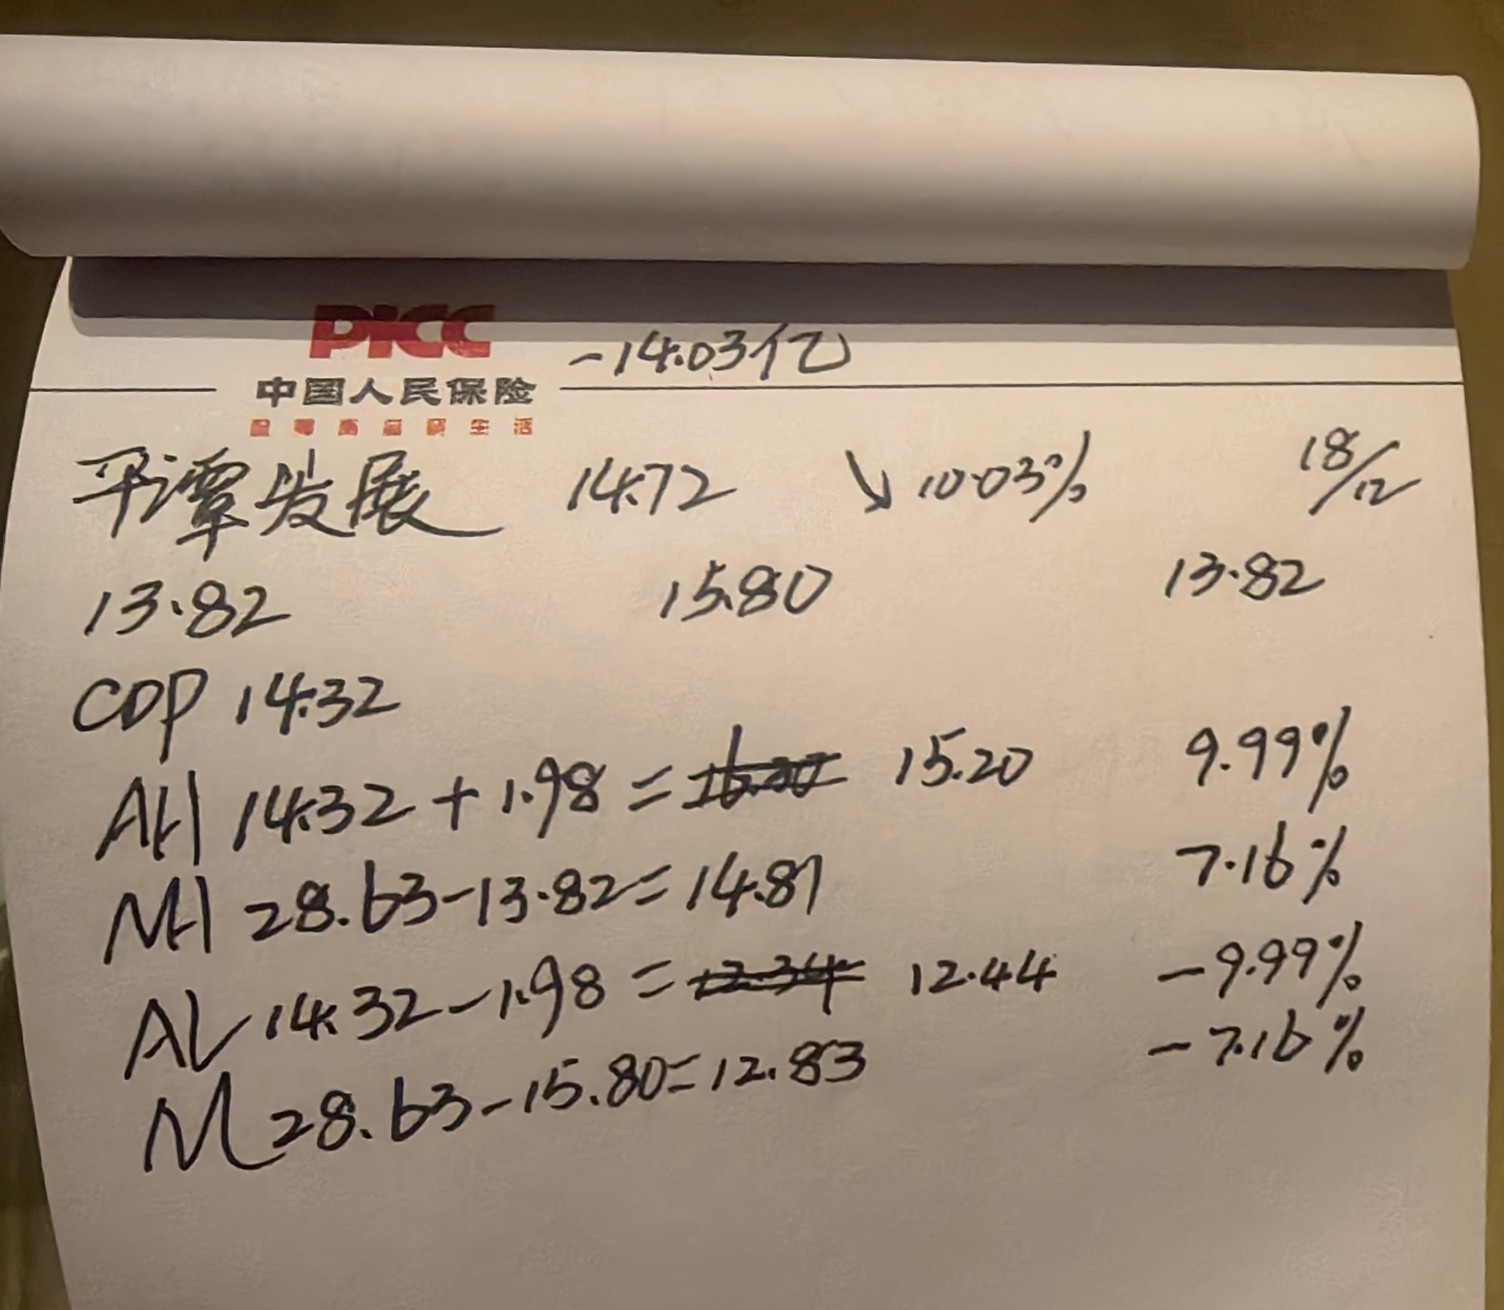 PICC
-14.03亿
中国人民保险
平谭发展 14.72 ↘ 10.03% 18/12
13.82 15.80 13.82
CDP 14.32
AH 14.32 + 1.98 = 16.30 15.20 9.99%
NH 28.63-13.82=14.81 7.16%
AL 14.32-1.98 = 12.34 12.44 -9.99%
NL 28.63-15.80=12.83 -7.16%